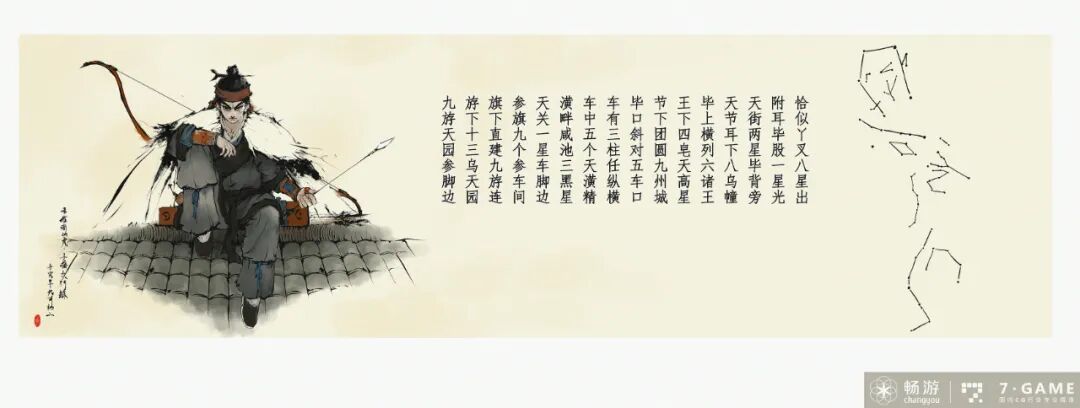 恰似丫叉八星出
附耳毕股一星光
天街两星毕背旁
天节耳下八乌幢
毕上横列六诸王
王下四皂天高星
节下团圆九州城
毕口斜对五车口
车有三柱任纵横
车中五个天潢精
潢畔咸池三黑星
天关一星车脚边
参旗九个参车间
旗下直建九斿连
斿下十三乌天园
九斿天园参脚边
畅游
changyou
7·GAME